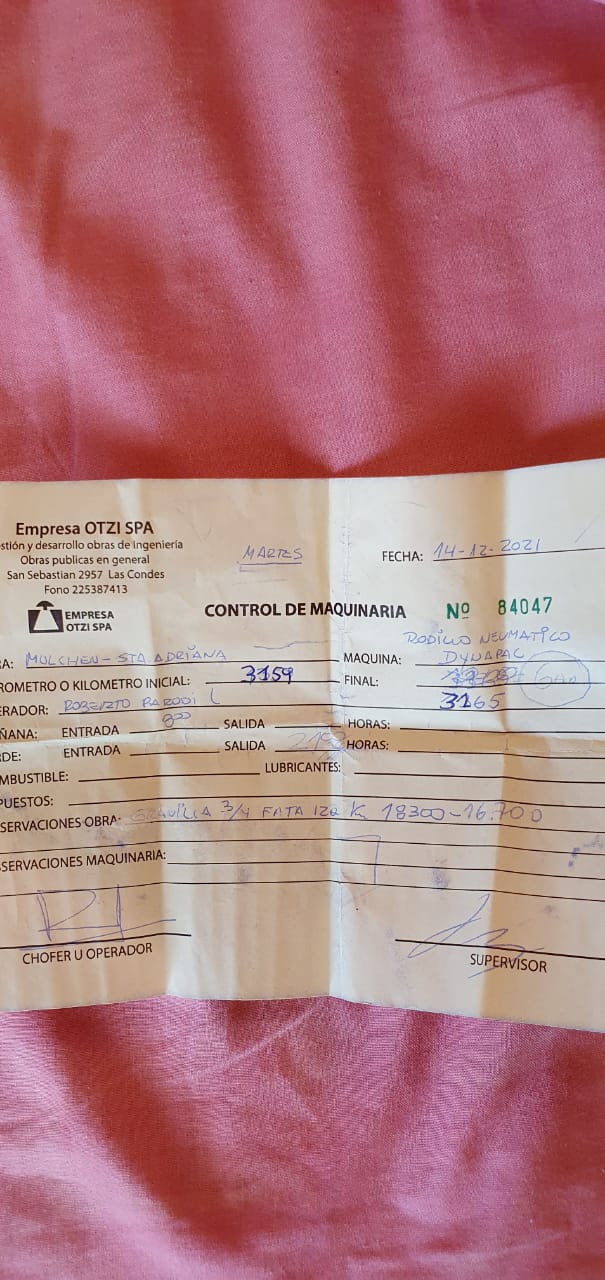 Empresa OTZI SPA
stión y desarrollo obras de Ingeniería
Obras publicas en general
San Sebastian 2957 Las Condes
Fono 225387413
EMPRESA
OTZI SPA
MARTES
FECHA: 14-12-2021
CONTROL DE MAQUINARIA Nº 84047
RODILLO NEUMATICO
RA: MULCHEN-STA ADRIANA MAQUINA: DYNAPAC
ROMETRO O KILOMETRO INICIAL: 3159 FINAL:
3165
ERADOR: ROBERTO PARODI L
ÑANA: ENTRADA 800 SALIDA HORAS:
RDE: ENTRADA SALIDA HORAS:
MBUSTIBLE: LUBRICANTES:
PUESTOS:
SERVACIONES OBRA: GRAVILLA 3/4 FATA IZQ K 18300-16.700
SERVACIONES MAQUINARIA:
CHOFER U OPERADOR
SUPERVISOR